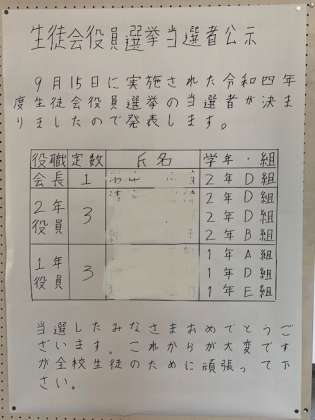 生徒会役員選挙当選者公示
９月１５日に実施された令和四年
度生徒会役員選挙の当選者が決ま
りましたので発表します。
役職 定数 氏名 学年・組
会長 1 2年D組
2年役員 3 2年D組
2年D組
2年B組
1年役員 3 1年A組
1年D組
1年E組
当選したみなさまおめでとうご
ざいます。これからが大変です
が全校生徒のために頑張って下
さい。